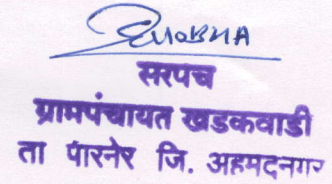 सरपंच
ग्रामपंचायत खडकवाडी
ता पारनेर जि. अहमदनगर